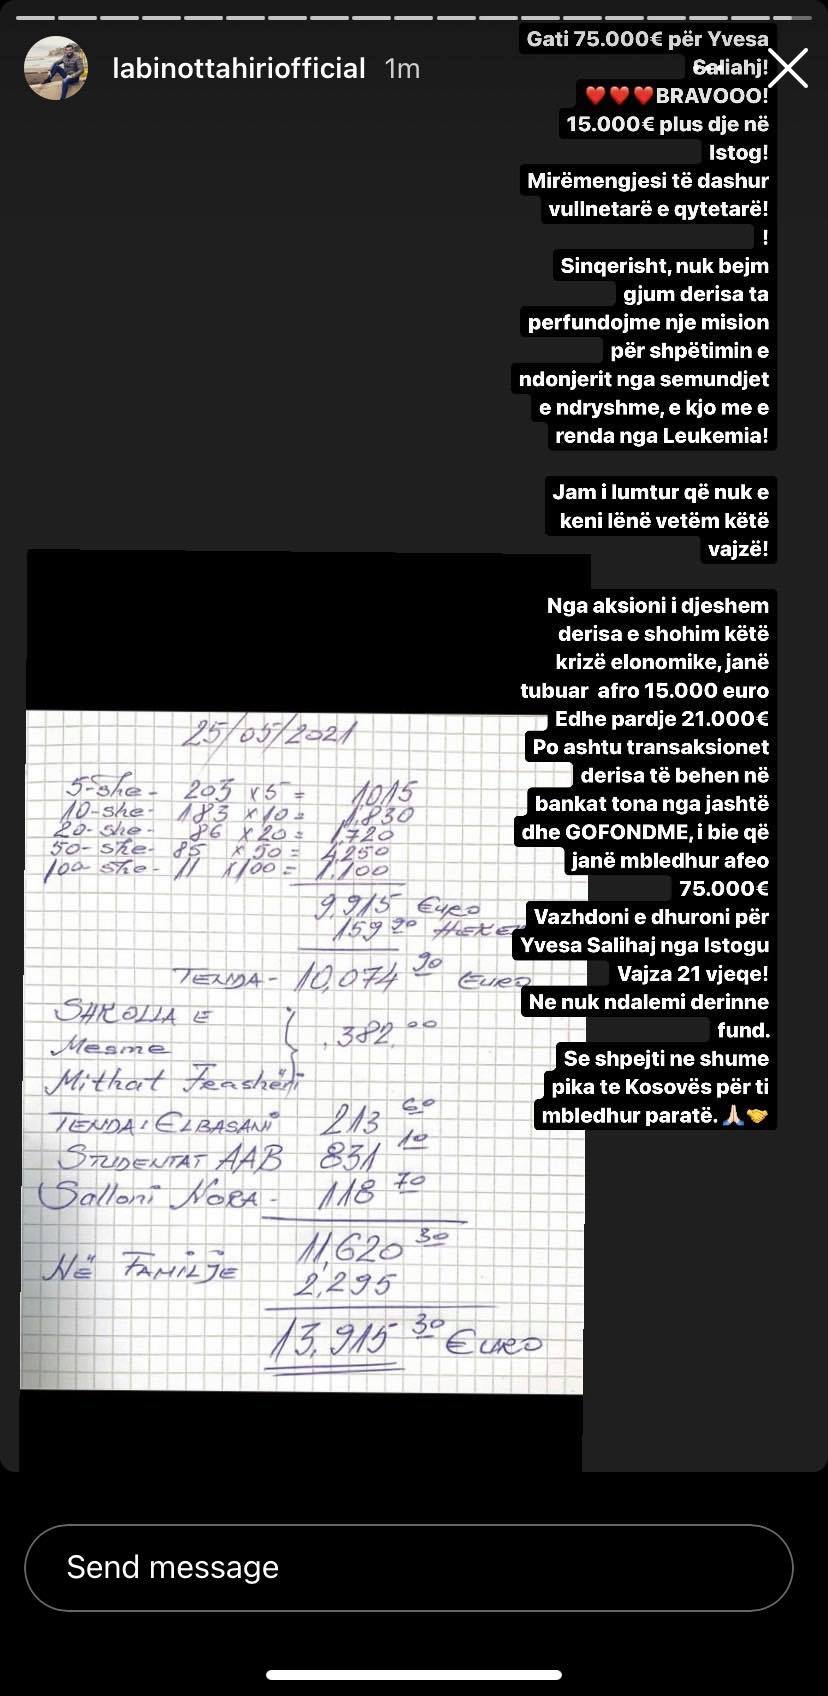 labinottahiriofficial 1m
Gati 75.000€ për Yvesa
Saliahj!
❤️❤️❤️BRAVOOO!
15.000€ plus dje në
Istog!
Mirëmengjesi të dashur
vullnetarë e qytetarë!
!
Sinqerisht, nuk bejm
gjum derisa ta
perfundojme nje mision
për shpëtimin e
ndonjerit nga semundjet
e ndryshme, e kjo me e
renda nga Leukemia!
Jam i lumtur që nuk e
keni lënë vetëm këtë
vajzë!
Nga aksioni i djeshem
derisa e shohim këtë
krizë elonomike, janë
tubuar afro 15.000 euro
Edhe pardje 21.000€
Po ashtu transaksionet
derisa të behen në
bankat tona nga jashtë
dhe GOFONDME, i bie që
janë mbledhur afeo
75.000€
Vazhdoni e dhuroni për
Yvesa Salihaj nga Istogu
Vajza 21 vjeqe!
Ne nuk ndalemi derinne
fund.
Se shpejti ne shume
pika te Kosovës për ti
mbledhur paratë.🙏🏻🤝
25/05/2021
5-she- 203 x5= 1015
10-she- 183 x10= 1,830
20-she- 86 x20= 1,720
50-she- 85 x50= 4,250
100-she- 11 x100= 1,100
9,915 Euro
159 90
TENDA- 10,074 90 Euro
SHKOLLA E
Mesme } 382.00
Mithat Frashëri
TENDA: ELBASANI 213 60
STUDENTAT AAB 831 10
Salloni NORA- 118 70
11,620 30
NË FAMILJE 2,295
13,915 30 Euro
Send message